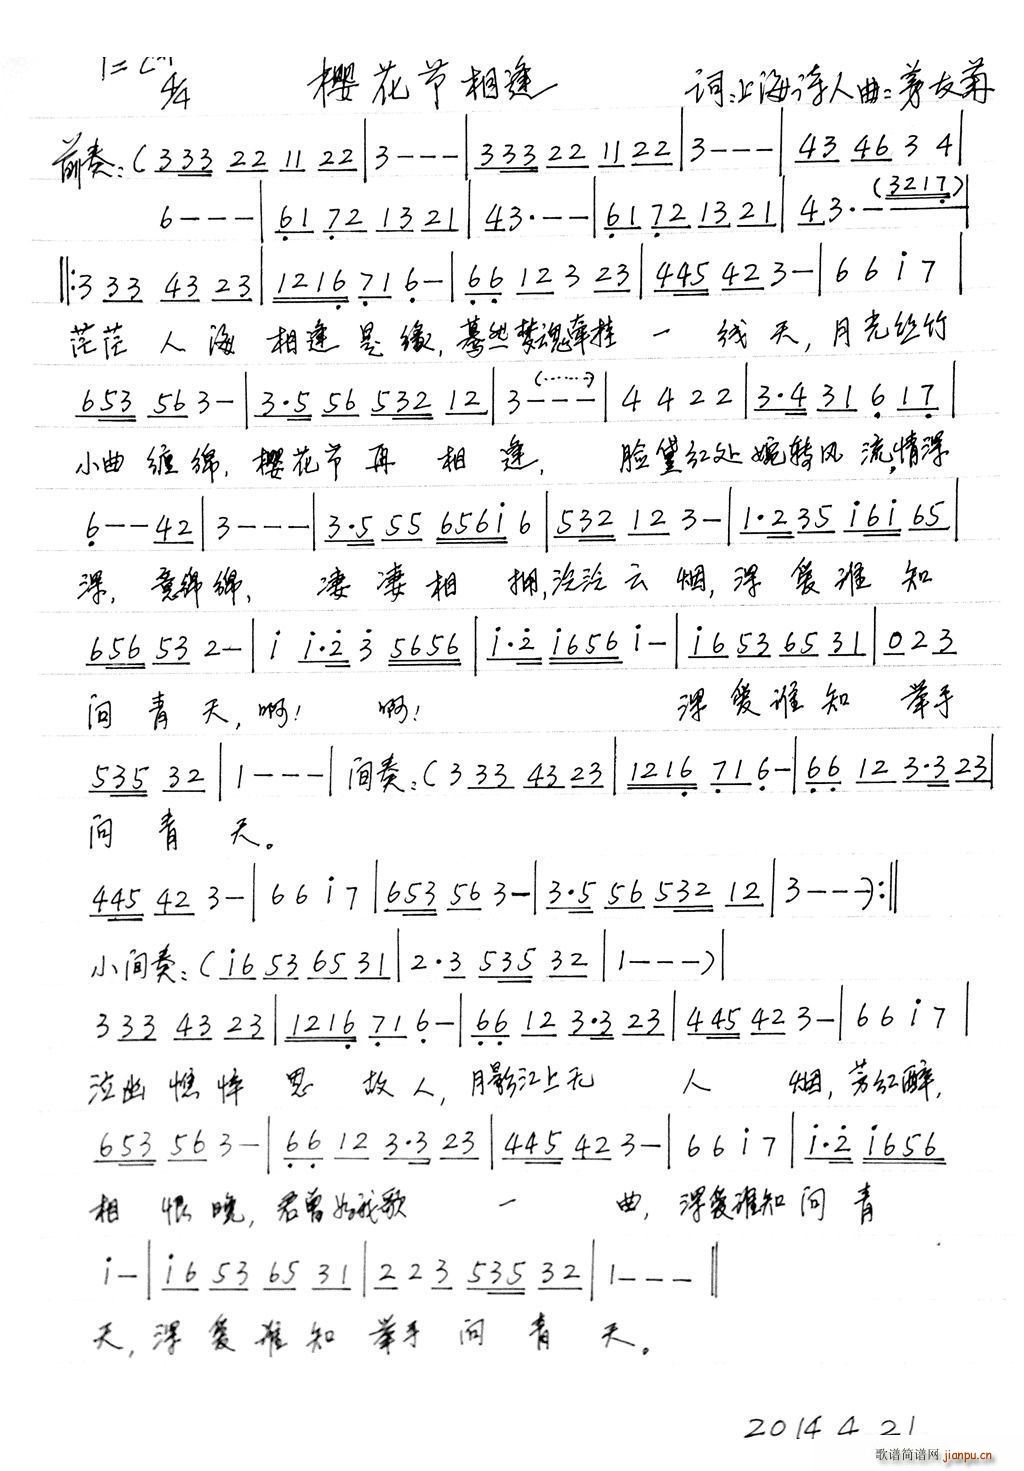 4/4
樱花节相逢
词:上海诗人曲:茅友菊
前奏:(333 22 11 22|3---|333 22 11 22|3---|43 46 3 4|
6---|61 72 13 21|43·--|61 72 13 21|43·--(3217)
‖:3 33 43 23|1216 71 6-|66 12 3 23|445 42 3-|6 6 i 7|
茫茫人海相逢是缘,蓦然梦魂牵挂一线天,月光丝竹
653 56 3-|3·5 56 532 12|3---(……)|4 4 2 2|3·4 31 6 17|
小曲缠绵,樱花节再相逢,脸黛红处婉转风流,情深
6--42|3---|3·5 55 656i 6|532 12 3-|1·2 35 i6i 65|
深,意绵绵,凄凄相拥,泣泣云烟,深爱谁知
656 53 2-|i i·2 3 5656|i·2 i656 i-|i6 53 65 31|0 2 3
问青天,啊!啊!深爱谁知举手
535 32|1---|间奏:(3 33 43 23|1216 71 6-|66 12 3·3 23|
问青天。
445 42 3-|6 6 i 7|653 56 3-|3·5 56 532 12|3---):‖
小间奏:(i6 53 65 31|2·3 535 32|1---)|
3 33 43 23|1216 71 6-|66 12 3·3 23|445 42 3-|6 6 i 7|
泣幽憔悴思故人,月影江上无人烟,芳红醉,
653 56 3-|66 12 3·3 23|445 42 3-|6 6 i 7|i·2 i656
相恨晚,君曾如我歌一曲,深爱谁知问青
i-|i6 53 65 31|2 2 3 535 32|1---‖
天,深爱谁知举手问青天。
2014 4 21
歌谱简谱网
jianpu.cn